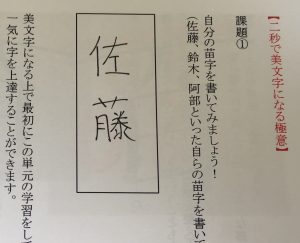 【二秒で美文字になる極意】
課題①
自分の苗字を書いてみましょう！
(佐藤、鈴木、阿部といった自らの苗字を書いて
佐藤
美文字になる上で最初にこの単元の学習をして
一気に字を上達することができます。